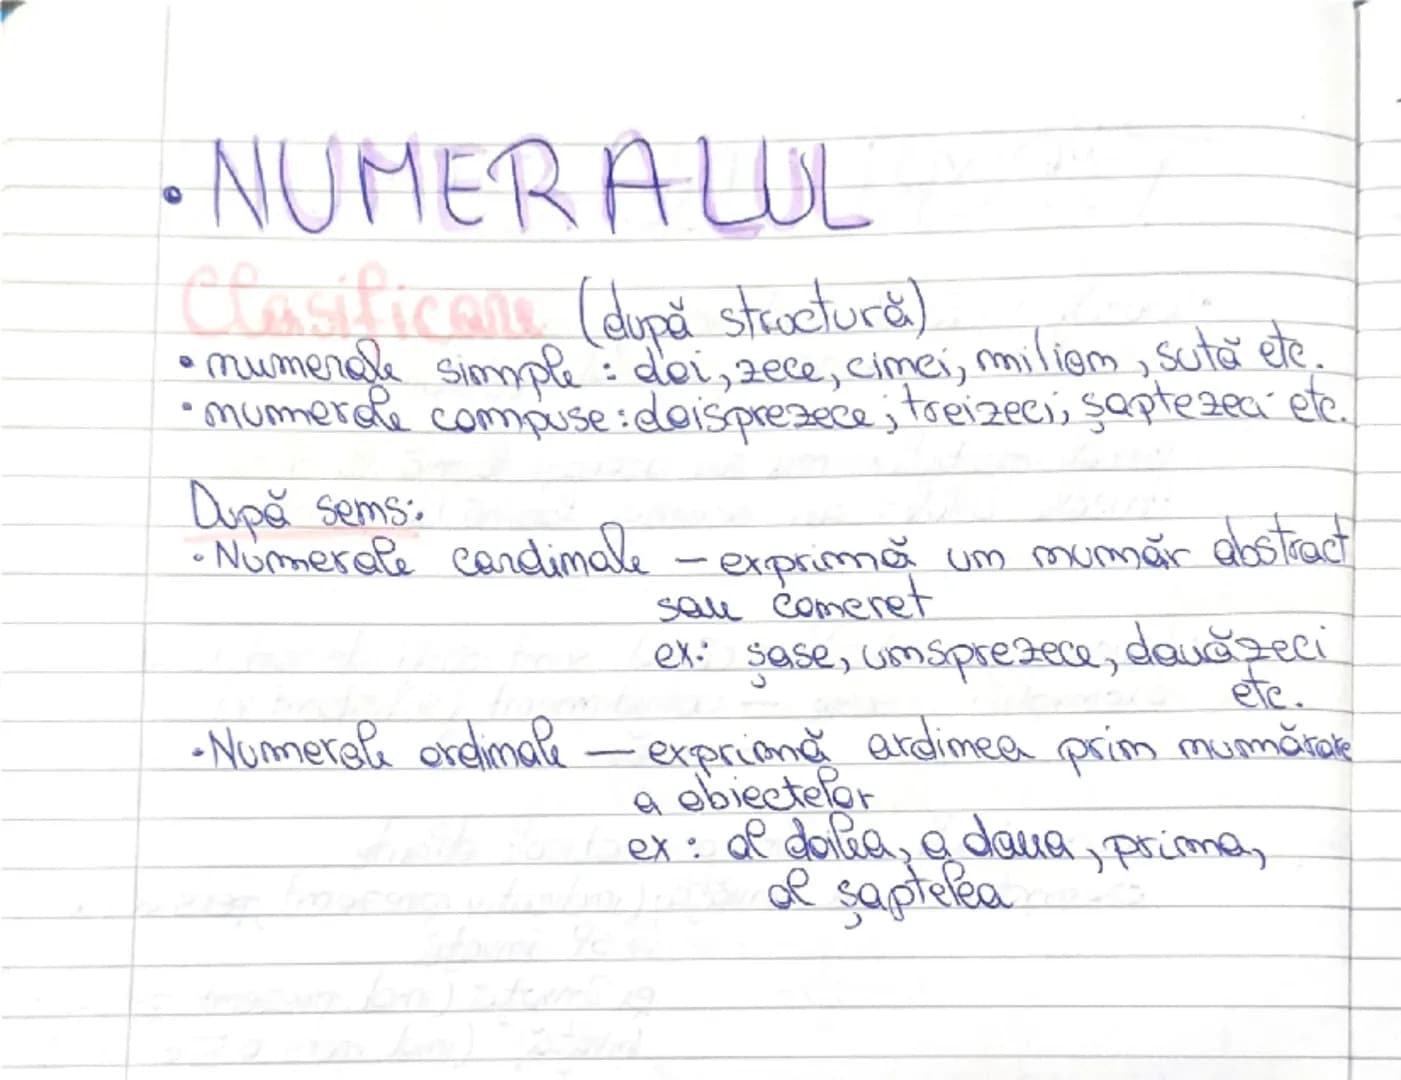 • NUMERALUL
Clasificare (după structură)
• numerale simple : doi, zece, cinci, milion, sută etc.
• numerale compuse : doisprezece ; treizeci ; șaptezeci etc.
După sens:
• Numerale cardinale – exprimă un număr abstract
sau concret
ex: șase, unsprezece, douăzeci
etc.
• Numerale ordinale – exprimă ordinea prin numărare
a obiectelor
ex : al doilea, a doua, prima,
al șaptelea